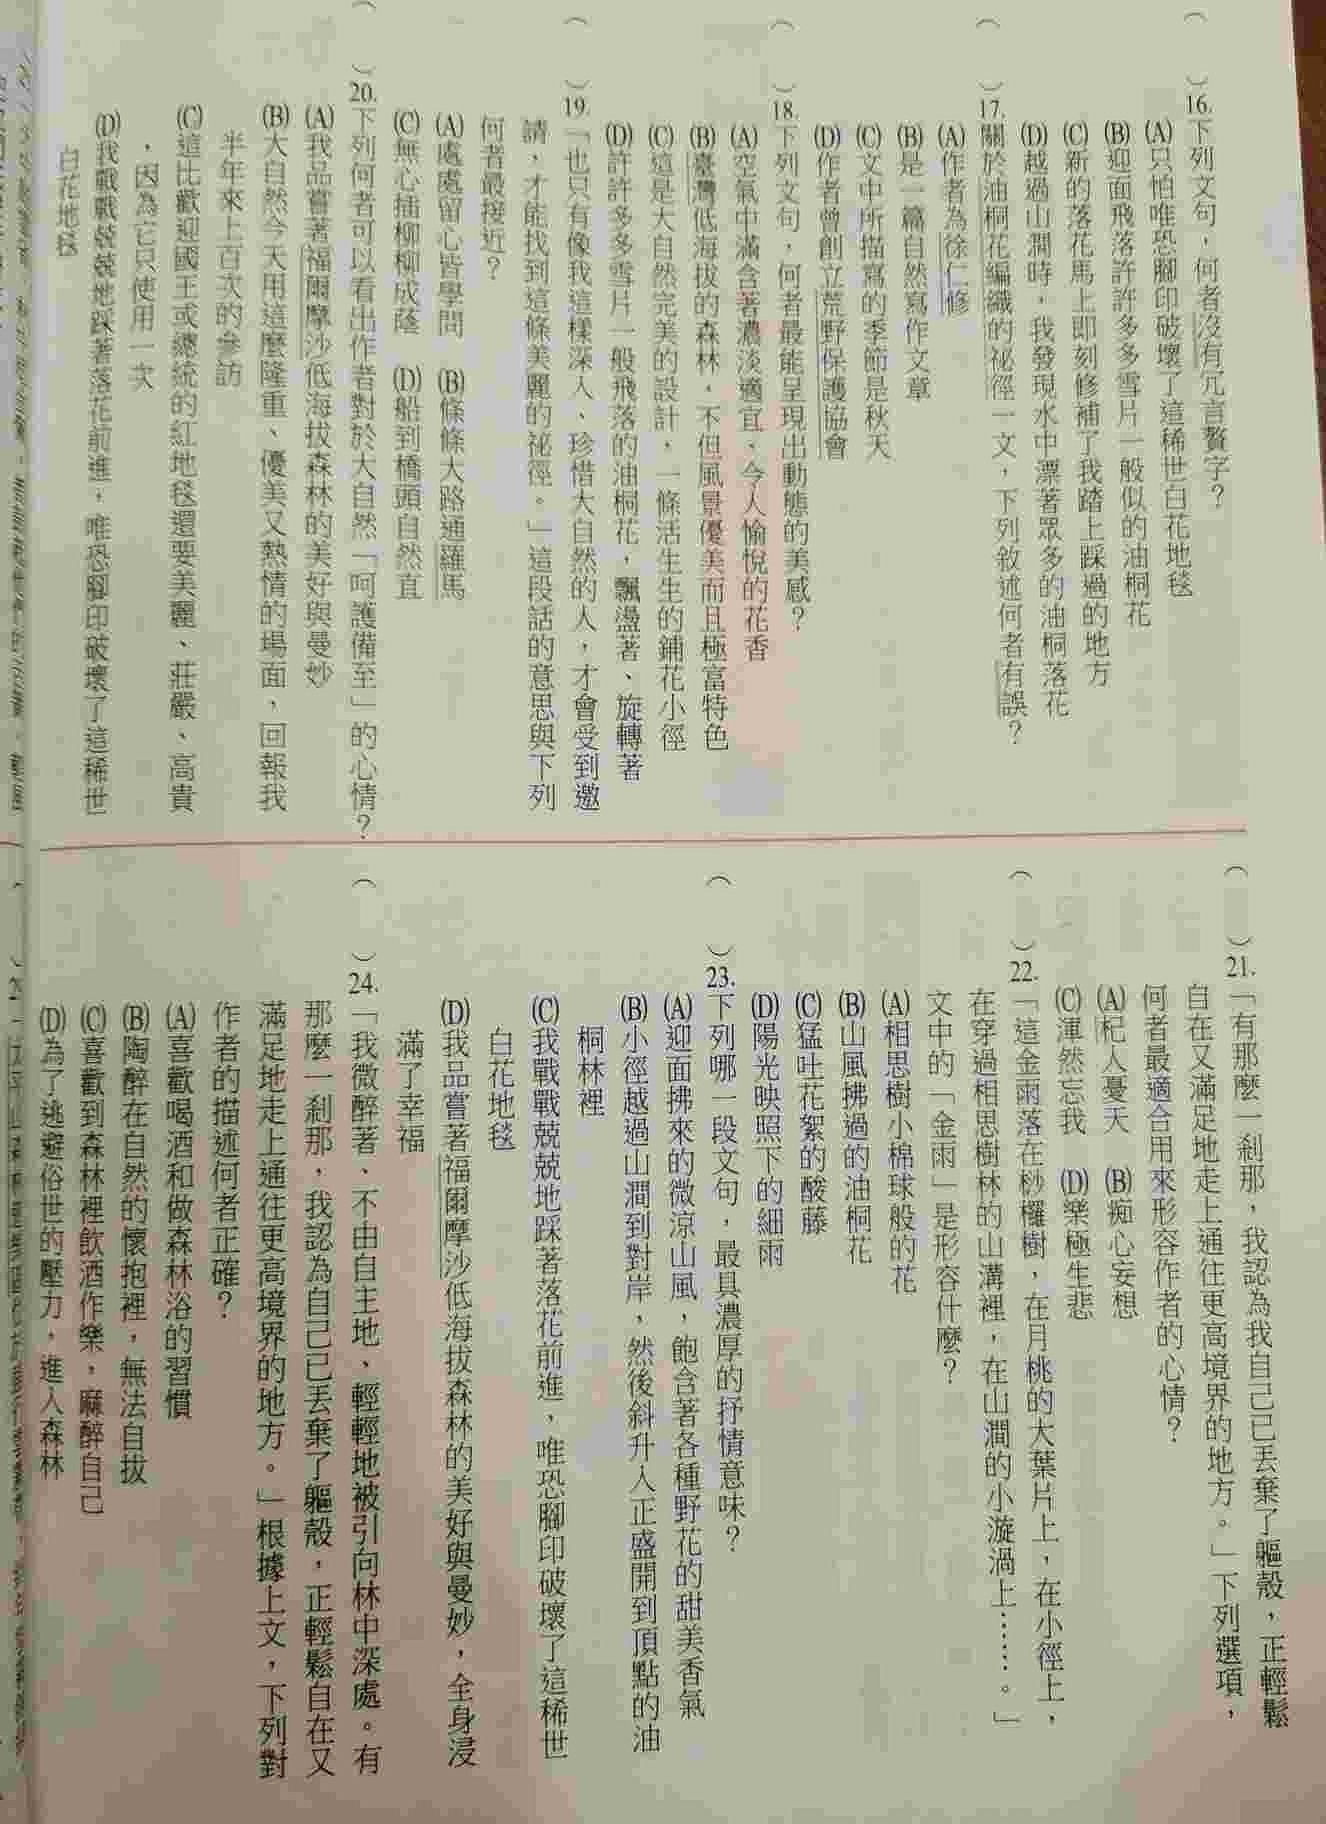 （　）16.下列文句，何者沒有冗言贅字？
(A)只怕唯恐腳印破壞了這稀世白花地毯
(B)迎面飛落許許多多雪片一般似的油桐花
(C)新的落花馬上即刻修補了我踏上踩過的地方
(D)越過山澗時，我發現水中漂著眾多的油桐落花
（　）17.關於油桐花編織的祕徑一文，下列敘述何者有誤？
(A)作者為徐仁修
(B)是一篇自然寫作文章
(C)文中所描寫的季節是秋天
(D)作者曾創立荒野保護協會
（　）18.下列文句，何者最能呈現出動態的美感？
(A)空氣中滿含著濃淡適宜、令人愉悅的花香
(B)臺灣低海拔的森林，不但風景優美而且極富特色
(C)這是大自然完美的設計，一條活生生的鋪花小徑
(D)許許多多雪片一般飛落的油桐花，飄盪著、旋轉著
（　）19.「也只有像我這樣深入、珍惜大自然的人，才會受到邀
請，才能找到這條美麗的祕徑。」這段話的意思與下列
何者最接近？
(A)處處留心皆學問　(B)條條大路通羅馬
(C)無心插柳柳成蔭　(D)船到橋頭自然直
（　）20.下列何者可以看出作者對於大自然「呵護備至」的心情？
(A)我品嘗著福爾摩沙低海拔森林的美好與曼妙
(B)大自然今天用這麼隆重、優美又熱情的場面，回報我
半年來上百次的參訪
(C)這比歡迎國王或總統的紅地毯還要美麗、莊嚴、高貴
，因為它只使用一次
(D)我戰戰兢兢地踩著落花前進，唯恐腳印破壞了這稀世
白花地毯
（　）21.「有那麼一剎那，我認為我自己已丟棄了軀殼，正輕鬆
自在又滿足地走上通往更高境界的地方。」下列選項，
何者最適合用來形容作者的心情？
(A)杞人憂天　(B)痴心妄想
(C)渾然忘我　(D)樂極生悲
（　）22.「這金雨落在桫欏樹，在月桃的大葉片上，在小徑上，
在穿過相思樹林的山溝裡，在山澗的小漩渦上……。」
文中的「金雨」是形容什麼？
(A)相思樹小棉球般的花
(B)山風拂過的油桐花
(C)猛吐花絮的酸藤
(D)陽光映照下的細雨
（　）23.下列哪一段文句，最具濃厚的抒情意味？
(A)迎面拂來的微涼山風，飽含著各種野花的甜美香氣
(B)小徑越過山澗到對岸，然後斜升入正盛開到頂點的油
桐林裡
(C)我戰戰兢兢地踩著落花前進，唯恐腳印破壞了這稀世
白花地毯
(D)我品嘗著福爾摩沙低海拔森林的美好與曼妙，全身浸
滿了幸福
（　）24.「我微醉著、不由自主地、輕輕地被引向林中深處。有
那麼一剎那，我認為自己已丟棄了軀殼，正輕鬆自在又
滿足地走上通往更高境界的地方。」根據上文，下列對
作者的描述何者正確？
(A)喜歡喝酒和做森林浴的習慣
(B)陶醉在自然的懷抱裡，無法自拔
(C)喜歡到森林裡飲酒作樂，麻醉自己
(D)為了逃避俗世的壓力，進入森林